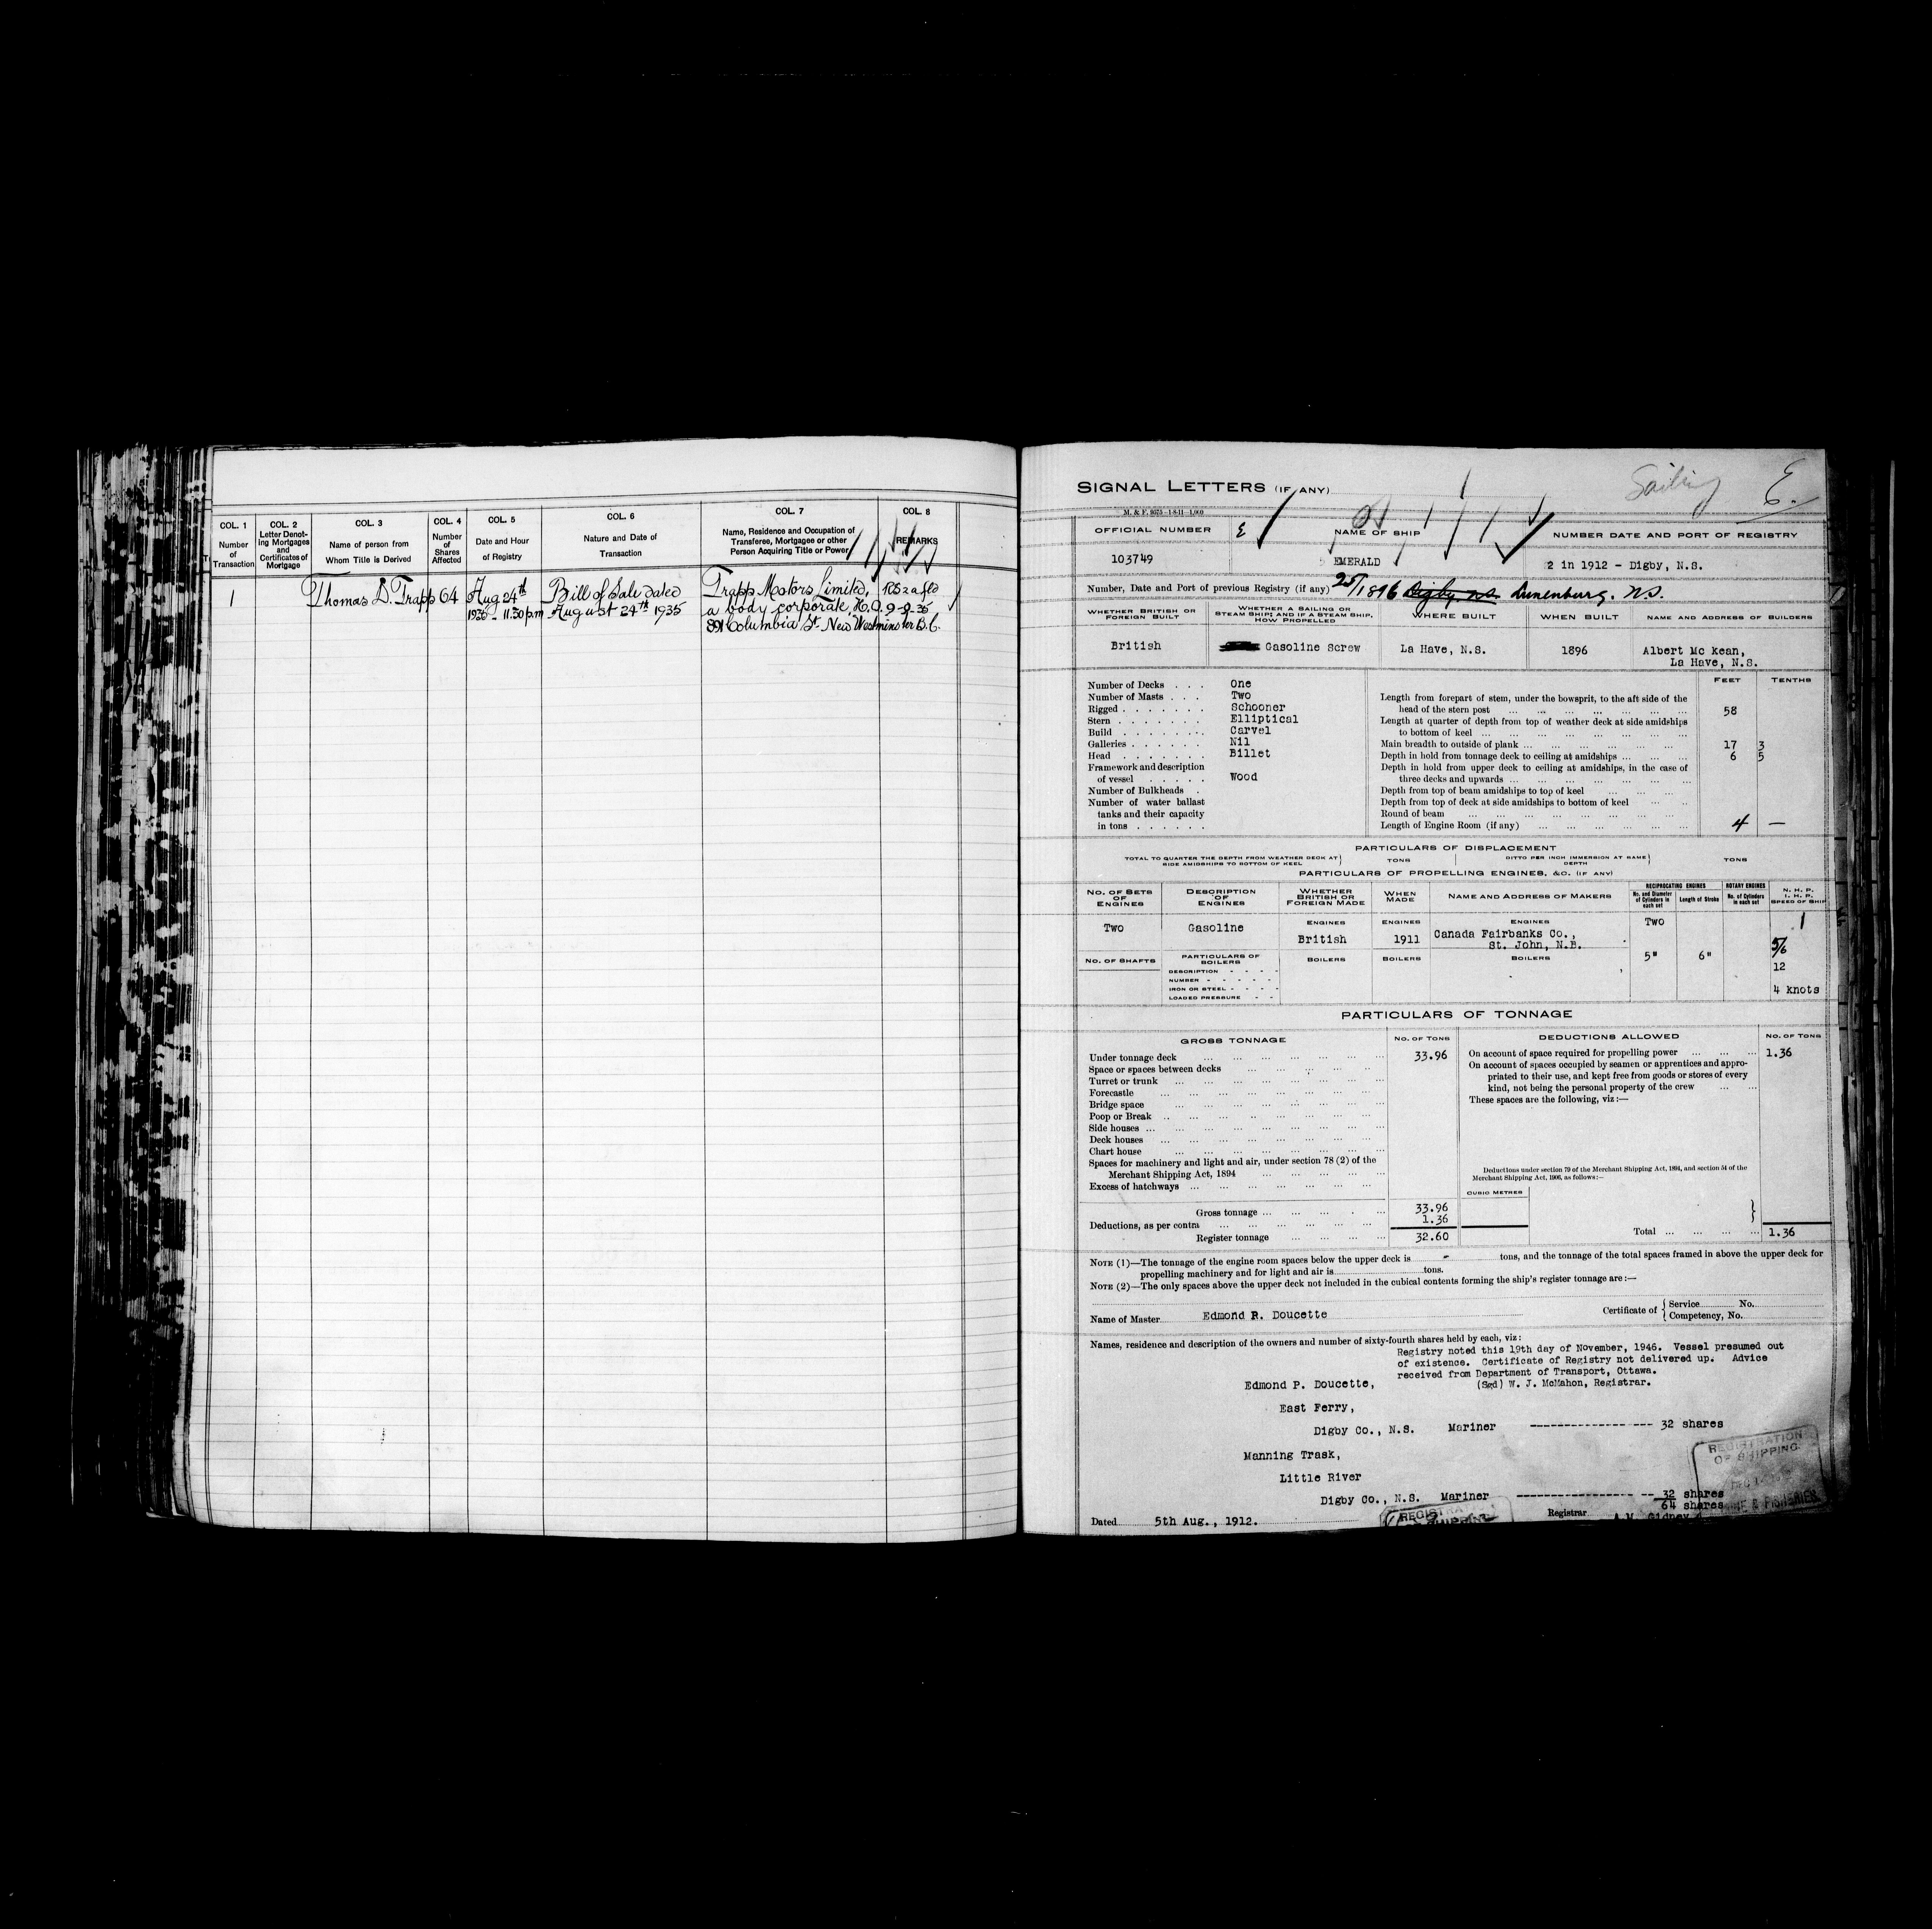 COL. 1 COL. 2 COL. 3 COL. 4 COL. 5 COL. 6 COL. 7 COL. 8
Number of Transaction
Letter Denoting Mortgages and Certificates of Mortgage
Name of person from Whom Title is Derived
Number of Shares Affected
Date and Hour of Registry
Nature and Date of Transaction
Name, Residence and Occupation of Transferee, Mortgagee or other Person Acquiring Title or Power
REMARKS
1 Thomas D. Trapp 64 Aug 24th Bill of Sale dated Trapp Motors Limited,
1935 - 11.30 p.m August 24th 1935 a body corporate, H.O. 9-9-35
891 Columbia St. New Westminster B.C.
SIGNAL LETTERS (IF ANY)
Sailing E.
M. & F. 9375-1-8-11-1,000
OFFICIAL NUMBER
NAME OF SHIP
NUMBER DATE AND PORT OF REGISTRY
103749 EMERALD 2 in 1912 - Digby, N.S.
Number, Date and Port of previous Registry (if any) 25/1896 Digby N.S. Lunenburg. N.S.
WHETHER BRITISH OR FOREIGN BUILT
WHETHER A SAILING OR STEAM SHIP; AND IF A STEAM SHIP, HOW PROPELLED
WHERE BUILT
WHEN BUILT
NAME AND ADDRESS OF BUILDERS
British Gasoline Screw La Have, N.S. 1896 Albert Mc Kean,
La Have, N.S.
FEET TENTHS
Number of Decks . . . One
Number of Masts . . . Two
Rigged . . . . . . . Schooner
Stern . . . . . . . Elliptical
Build . . . . . . . Carvel
Galleries . . . . . . Nil
Head . . . . . . . Billet
Framework and description
of vessel . . . . . Wood
Number of Bulkheads .
Number of water ballast
tanks and their capacity
in tons . . . . . .
Length from forepart of stem, under the bowsprit, to the aft side of the
head of the stern post 58
Length at quarter of depth from top of weather deck at side amidships
to bottom of keel
Main breadth to outside of plank 17 3
Depth in hold from tonnage deck to ceiling at amidships 6 5
Depth in hold from upper deck to ceiling at amidships, in the case of
three decks and upwards
Depth from top of beam amidships to top of keel
Depth from top of deck at side amidships to bottom of keel
Round of beam
Length of Engine Room (if any) 4 —
PARTICULARS OF DISPLACEMENT
TOTAL TO QUARTER THE DEPTH FROM WEATHER DECK AT SIDE AMIDSHIPS TO BOTTOM OF KEEL } TONS DITTO PER INCH IMMERSION AT SAME DEPTH } TONS
PARTICULARS OF PROPELLING ENGINES, &C. (IF ANY)
NO. OF SETS OF ENGINES
DESCRIPTION OF ENGINES
WHETHER BRITISH OR FOREIGN MADE
WHEN MADE
NAME AND ADDRESS OF MAKERS
RECIPROCATING ENGINES
No. and Diameter of Cylinders in each set
Length of Stroke
ROTARY ENGINES
No. of Cylinders in each set
N. H. P.
I. H. P.
SPEED OF SHIP
ENGINES ENGINES ENGINES
Two Gasoline British 1911 Canada Fairbanks Co., Two 1
St. John, N.B. 5/6
NO. OF SHAFTS
PARTICULARS OF BOILERS
BOILERS BOILERS BOILERS 5" 6" 12
DESCRIPTION
NUMBER
IRON OR STEEL
LOADED PRESSURE
4 knots
PARTICULARS OF TONNAGE
GROSS TONNAGE NO. OF TONS
Under tonnage deck 33.96
Space or spaces between decks
Turret or trunk
Forecastle
Bridge space
Poop or Break
Side houses
Deck houses
Chart house
Spaces for machinery and light and air, under section 78 (2) of the
Merchant Shipping Act, 1894
Excess of hatchways
Gross tonnage 33.96
Deductions, as per contra 1.36
Register tonnage 32.60
DEDUCTIONS ALLOWED NO. OF TONS
On account of space required for propelling power 1.36
On account of spaces occupied by seamen or apprentices and appro-
priated to their use, and kept free from goods or stores of every
kind, not being the personal property of the crew
These spaces are the following, viz:—
Deductions under section 79 of the Merchant Shipping Act, 1894, and section 54 of the
Merchant Shipping Act, 1906, as follows:—
CUBIC METRES
Total 1.36
NOTE (1)—The tonnage of the engine room spaces below the upper deck is - tons, and the tonnage of the total spaces framed in above the upper deck for
propelling machinery and for light and air is tons.
NOTE (2)—The only spaces above the upper deck not included in the cubical contents forming the ship's register tonnage are:—
Name of Master Edmond R. Doucette
Certificate of { Service No.
Competency, No.
Names, residence and description of the owners and number of sixty-fourth shares held by each, viz:
Registry noted this 19th day of November, 1946. Vessel presumed out
of existence. Certificate of Registry not delivered up. Advice
received from Department of Transport, Ottawa.
(Sgd) W. J. McMahon, Registrar.
Edmond P. Doucette,
East Ferry,
Digby Co., N.S. Mariner ---------------- --- 32 shares
Manning Trask,
Little River
Digby Co., N.S. Mariner ---------------- -- 32 shares
64 shares
REGISTRATION
OF SHIPPING
& FISHERIES
Dated 5th Aug., 1912.
Registrar